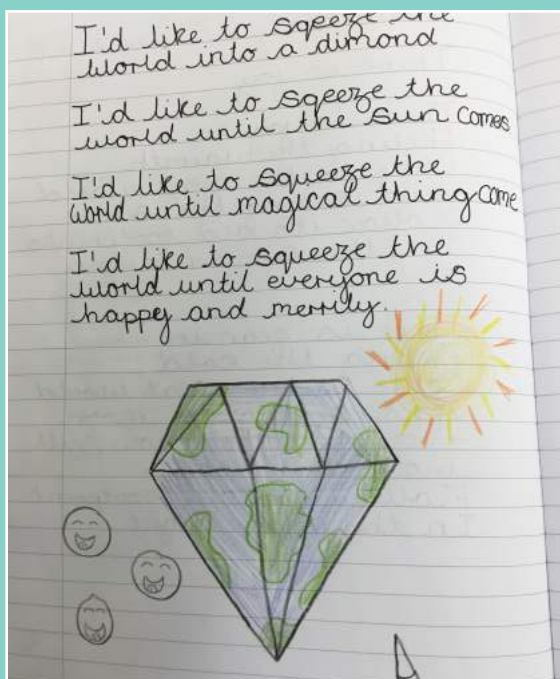 I'd like to sqeeze the
world into a dimond
I'd like to sqeeze the
world until the sun comes
I'd like to squeeze the
world until magical thing come
I'd like to squeeze the
world until everyone is
happy and merrily.